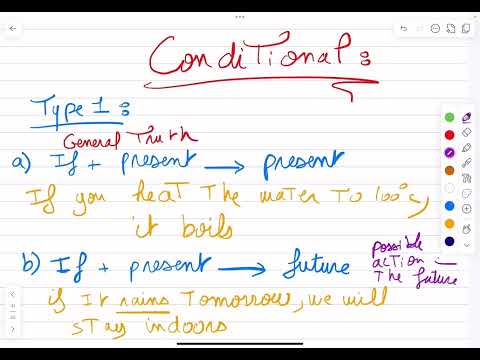 Conditional :
Type 1 :
General Truth
a) If + present → present
If you heat the water to 100°c,
it boils
b) If + present → future
possible
action in
the future
if It rains Tomorrow, we will
stay indoors